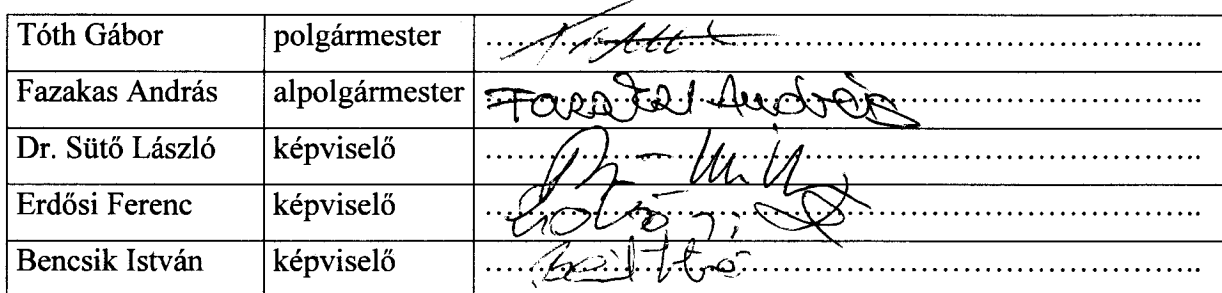 Tóth Gábor polgármester ........................................................................
Fazakas András alpolgármester Fazakas András
Dr. Sütő László képviselő ........................................................................
Erdősi Ferenc képviselő ........................................................................
Bencsik István képviselő ........................................................................